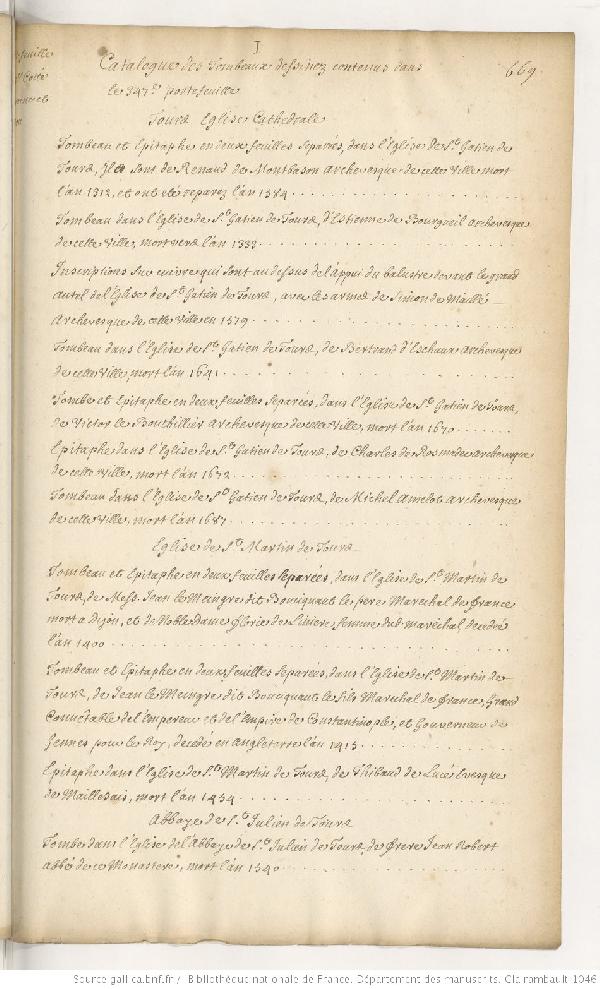 I
669
Catalogue des Tombeaux dessinez contenus dans
le 347e portefeuille
Tours Eglise Cathedrale
Tombeau et Epitaphe en deux feuilles separées, dans l'Eglise de St Gatien de
Tours, Ils sont de Renaud de Montbason Archevesque de cette Ville mort
l'an 1312, et ont eté reparez l'an 1584
Tombeau dans l'Eglise de St Gatien de Tours, d'Estienne de Bourgueil Archevesque
de cette Ville, mort vers l'an
Inscriptions sur cuivre qui sont au dessus de l'appui du balustre devant le grand
autel de l'Eglise de St Gatien de Tours, avec les armes de Simon de Maillé
Archevesque de cette Ville en 1579
Tombeau dans l'Eglise de St Gatien de Tours, de Bertrand d'Eschaux Archevesque
de cette Ville, mort l'an 1641
Tombe et Epitaphe en deux feuilles separées, dans l'Eglise de St Gatien de Tours,
de Victor le Bouthillier Archevesque de cette Ville, mort l'an 1670
Epitaphe dans l'Eglise de St Gatien de Tours, de Charles de Rosmadec Archevesque
de cette Ville, mort l'an 1672
Tombeau dans l'Eglise de St Gatien de Tours, de Michel Amelot Archevesque
de cette Ville, mort l'an 1687
Eglise de St Martin de Tours
Tombeau et Epitaphe en deux feuilles separées, dans l'Eglise de St Martin de
Tours, de Mess. Jean le Meingre dit Bouciquaut le pere Marechal de France
mort a Dijon, et de Noble dame Florie de Liniere femme dud. maréchal decedé
l'an 1400
Tombeau et Epitaphe en deux feuilles separées, dans l'Eglise de St Martin de
Tours, de Jean le Meingre dit Bouciquaut le fils Marechal de France, Grand
Connétable de l'Empereur et de l'Empire de Constantinople, et Gouverneur de
Gennes pour le Roy, decedé en Angleterre l'an 1415
Epitaphe dans l'Eglise de St Martin de Tours, de Thibaud de Lucé Evesque
de Maillesais, mort l'an 1454
Abbaye de St Julien de Tours
Tombe dans l'Eglise de l'Abbaye de St Julien de Tours, de Frere Jean Robert
abbé de ce Monastere, mort l'an 1540
Source gallica.bnf.fr / Bibliothèque nationale de France. Département des manuscrits. Clairambault 1046